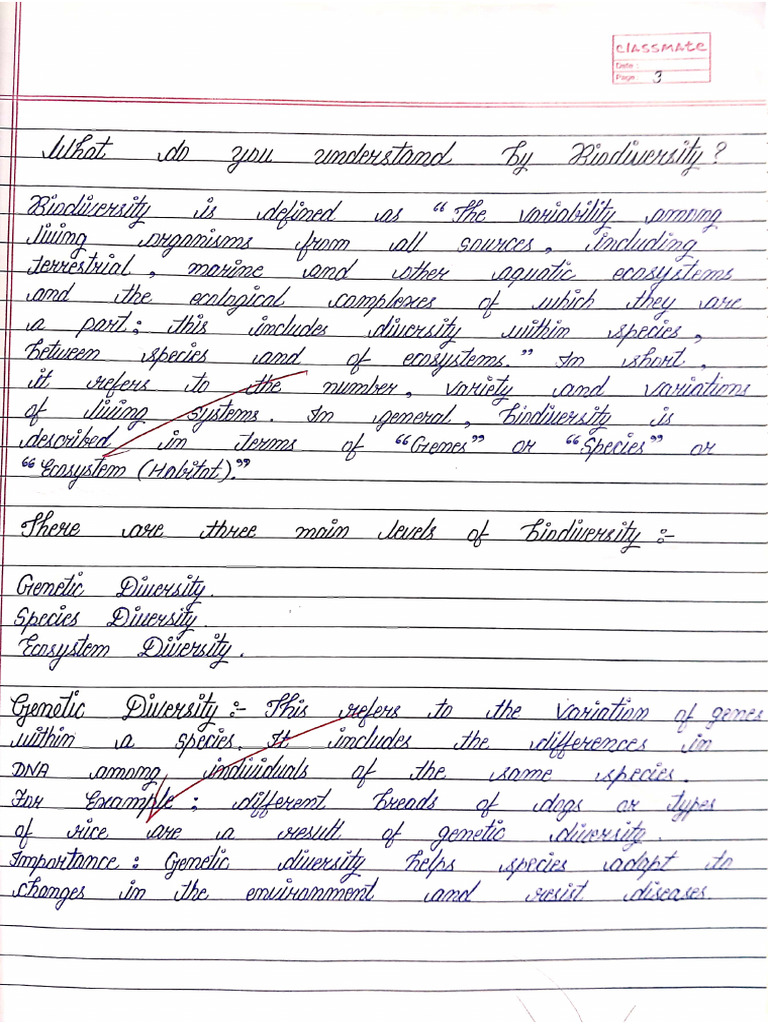 classmate
Date :
Page : 3
What do you understand by Biodiversity?
Biodiversity is defined as "The variability among
living organisms from all sources, including
terrestrial, marine and other aquatic ecosystems
and the ecological complexes of which they are
a part; this includes diversity within species,
between species and of ecosystems." In short,
it refers to the number, variety and variations
of living systems. In general, biodiversity is
described in terms of "Genes" or "Species" or
"Ecosystem (Habitat)."
There are three main levels of biodiversity :-
Genetic Diversity.
Species Diversity.
Ecosystem Diversity.
Genetic Diversity :- This refers to the variation of genes
within a species. It includes the differences in
DNA among individuals of the same species.
For Example ; different breads of dogs or types
of rice are a result of genetic diversity.
Importance : Genetic diversity helps species adapt to
changes in the environment and resist diseases.